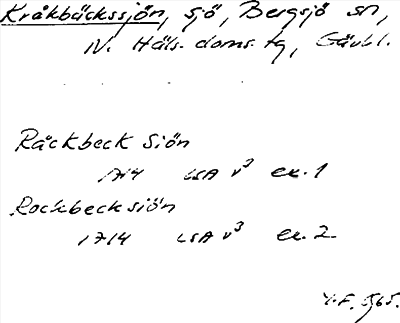 Kråkbäckssjön, sjö, Bergsjö sn,
N. Häls. doms. tg, Gävbl.
Räckbeck Siön
1714 LSA v³ ex. 1
Rockbecksiön
1714 LSA v³ ex. 2
565.